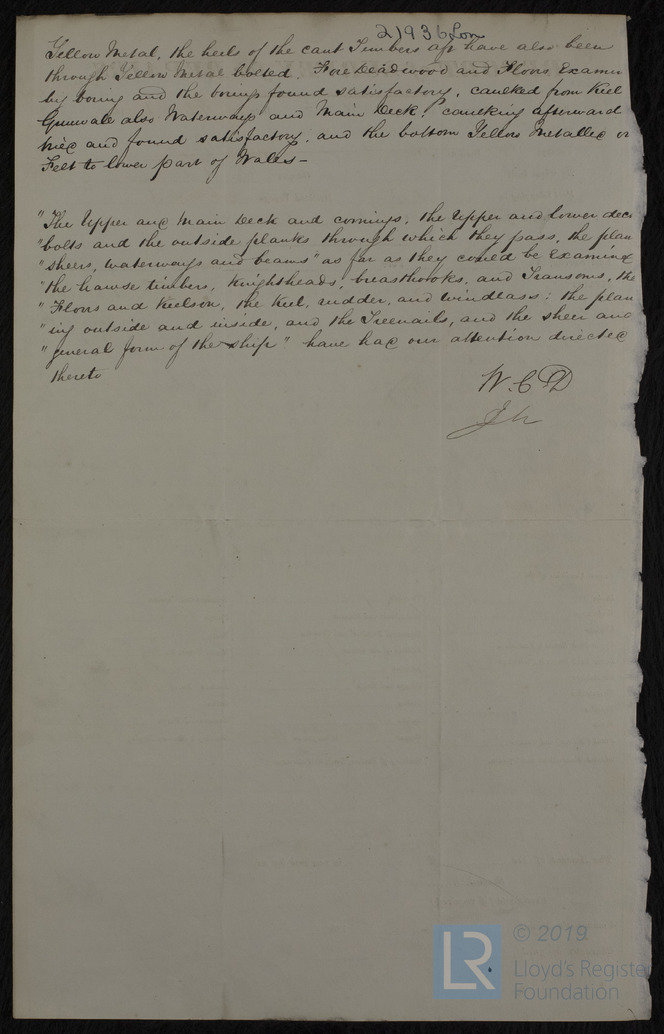 21936 Lon
Yellow Metal, the heels of the cant Timbers aft have also been
through Yellow Metal bolted. Fore Deadwood and Floors Examin
by boring and the borings found satisfactory, caulked from Keel
Gunwale also Waterways and Main Deck, caulking afterward
tried and found satisfactory, and the bottom Yellow Metalled on
Felt to lower part of Wales –
"The Upper and Main Deck and comings, the Upper and lower deck
"bolts and the outside planks through which they pass, the plan
"sheers, waterways and beams" as far as they could be Examined
"the hawse timbers, Knightheads, breasthooks, and Transoms, the
"Floors and Keelson, the Keel, rudder, and windlass; the plan
"ing outside and inside, and the Treenails, and the sheer and
"general form of the ship" have had our attention directed
thereto
W. C. D
LR
© 2019
Lloyd's Register
Foundation